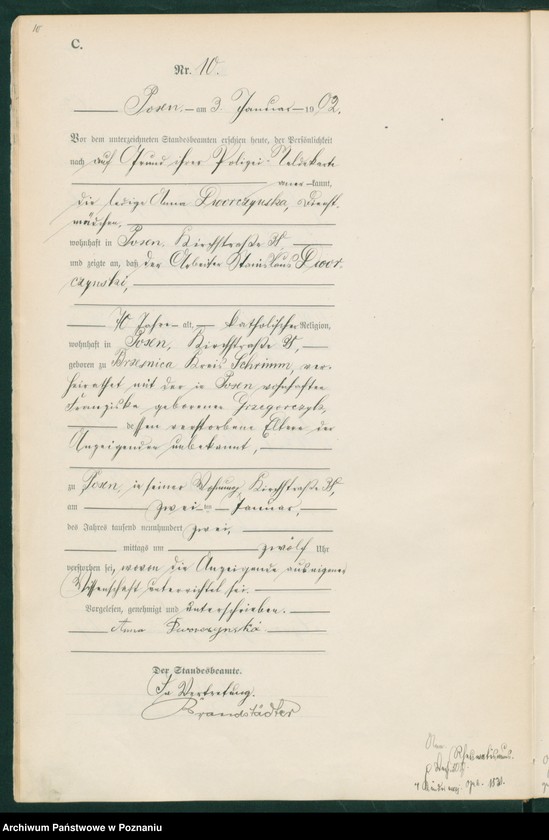 10
C.
Nr. 10.
Posen, am 3. Januar 1902.
Vor dem unterzeichneten Standesbeamten erschien heute, der Persönlichkeit
nach auf Grund ihrer Polizei-Meldekarte
aner kannt,
die ledige Anna Dworczynska, Dienst-
mädchen,
wohnhaft in Posen, Kirchstraße
und zeigte an, daß der Arbeiter Stanislaus Dwor-
czynski,
Jahre alt, katholischer Religion,
wohnhaft in Posen, Kirchstraße
geboren zu Brzesnica Kreis Schrimm, ver-
heirathet mit der in Posen wohnhaften
Franziska geborenen Grzegorczyk,
dessen verstorbene Eltern der
Anzeigenden unbekannt,
zu Posen, in seiner Wohnung, Kirchstraße
am zwei ten Januar,
des Jahres tausend neunhundert zwei,
mittags um zwölf Uhr
verstorben sei, wovon die Anzeigende aus eigener
Wissenschaft unterrichtet sei.
Vorgelesen, genehmigt und unterschrieben.
Anna Dworczynska
Der Standesbeamte.
In Vertretung.
Brandstädter